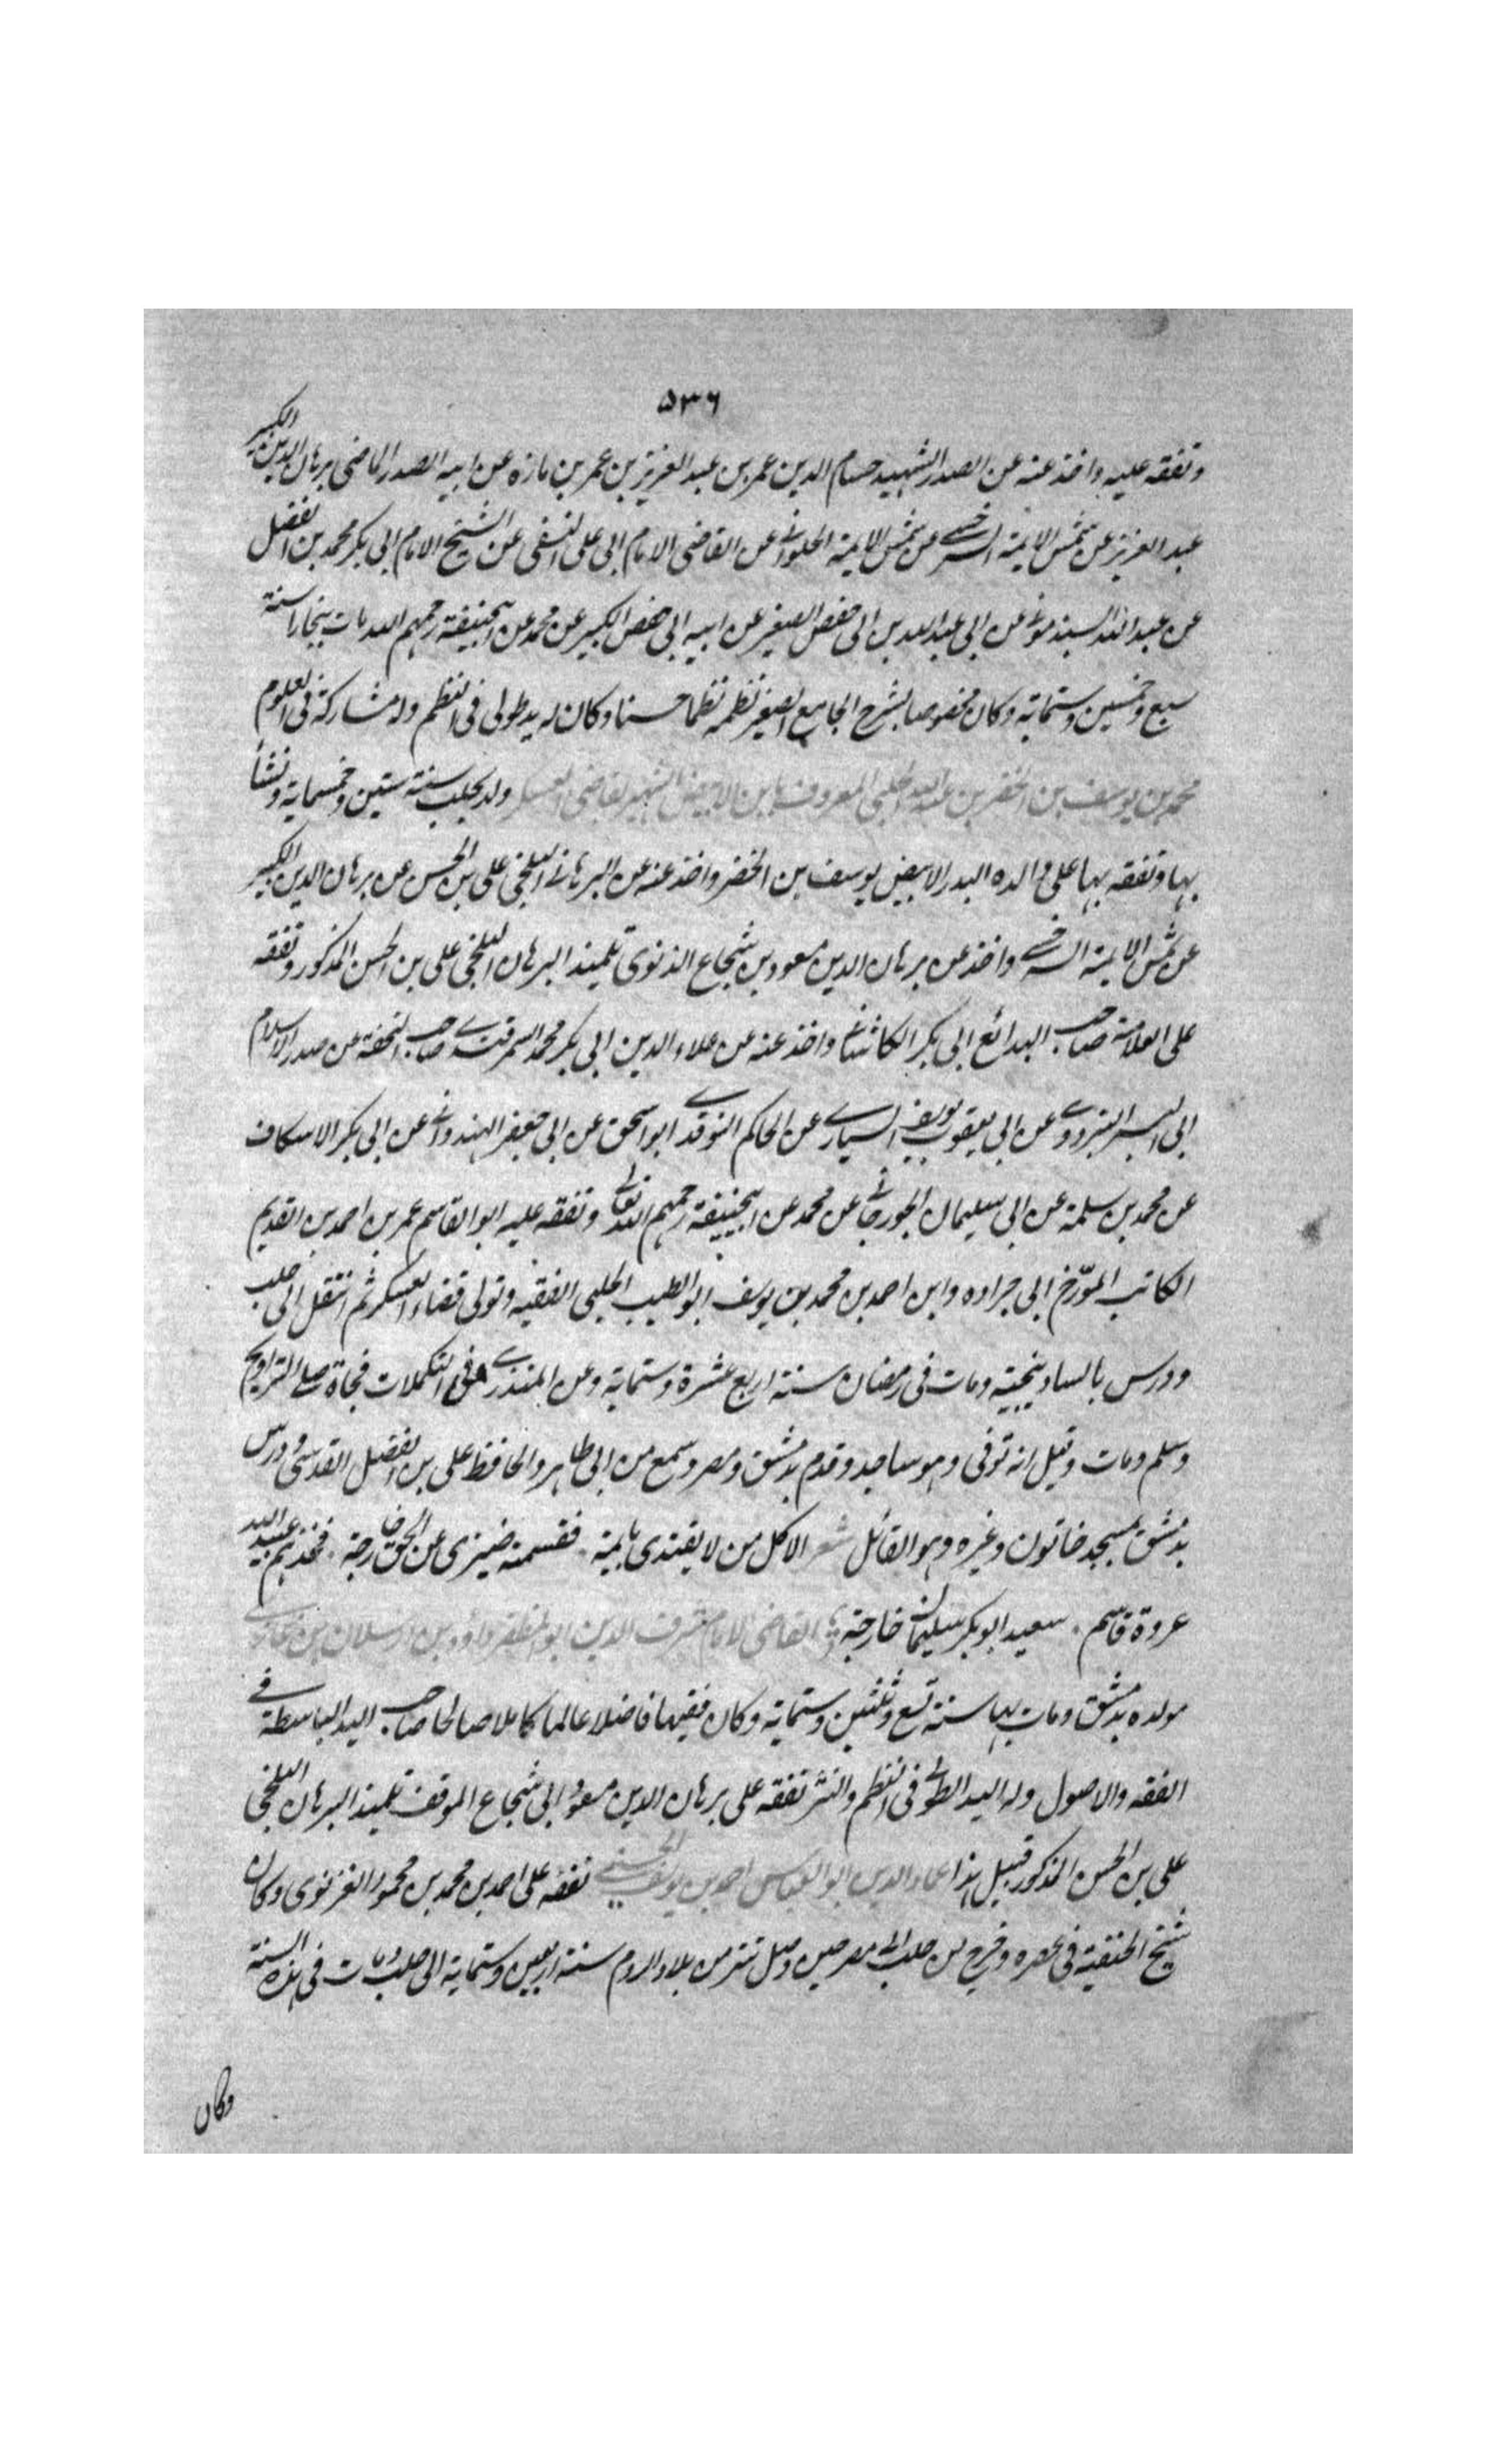 ٥٣٦
وتفقه عليه واخذ عنه عن الصدر الشهيد حسام الدين عمر بن عبد العزيز بن عمر بن مازه عن ابيه الصدر الماضى برهان الدين الكبير
عبد العزيز عن شمس الايمة السرخسى عن شمس الايمة الحلوانى عن القاضى الامام ابى على النسفى عن الشيخ الامام ابى بكر محمد بن الفضل
عن عبد الله السبذمونى عن ابى عبد الله بن ابى حفص الصغير عن ابيه ابى حفص الكبير عن محمد عن ابيحنيفة رحمهم الله مات ببخارا سنة
سبع وخمسين وستماية وكان مخصوصا بشرح الجامع الصغير نظمه نظما حسنا وكان له يد طولى فى النظم وله مشاركة فى العلوم
محمد بن يوسف بن الخضر بن عبد الله الحلبى المعروف بابن الابيض الشهير بقاضى العسكر ولد بحلب سنة ستين وخمسماية ونشأ
بها وتفقه بها على والده البدر الابيض يوسف بن الخضر واخذ عنه عن البرهانى البلخى على بن الحسن عن برهان الدين الكبير
عن شمس الايمة السرخسى واخذ عن برهان الدين مسعود بن شجاع الذنوى تلميذ البرهان البلخى على بن الحسن المذكور وتفقه
على العلامة صاحب البدائع ابى بكر الكاشانى واخذ عنه عن علاء الدين ابى بكر محمد السمرقندى صاحب التحفة عن صدر الاسلام
ابى اليسر البزدوى عن ابى يعقوب يوسف السيارى عن الحاكم النوقدى ابو اسحق عن ابى جعفر الهندوانى عن ابى بكر الاسكاف
عن محمد بن سلمة عن ابى سليمان الجوزجانى عن محمد عن ابيحنيفة رحمهم الله تعالى وتفقه عليه ابو القاسم عمر بن احمد بن القديم
الكاتب المؤرّخ ابى جراده وابن احمد بن محمد بن يوسف ابو الطيب الحلبى الفقيه وتولى قضاء العسكر ثم انتقل الى حلب
ودرس بالساديخية ومات فى رمضان سنة اربع عشرة وستماية وعن المنذرى فى التكملات فجاة صلى التراويح
وسلم ومات وقيل انه توفى وهو ساجد وقدم بدمشق ومصر وسمع من ابى طاهر والحافظ على بن الفضل القدسى ودرس
بدمشق بمسجد خاتون وغيره وهو القائل شعر الا كل من لا يقتدى بايمة . فقسمته ضيزى عن الحق خارجة . فخذهم عبيد الله
عروة قاسم . سعيد ابو بكر سليمان خارجة القاضى الامام شرف الدين ابو المظفر داؤد بن ارسلان بن غازى
مولده بدمشق ومات بها سنة تسع وثلثين وستماية وكان فقيها فاضلا عالما كاملا صالحا صاحب اليد الباسطة فى
الفقه والاصول وله اليد الطولى فى النظم والنثر تفقه على برهان الدين مسعود ابى شجاع الموقف تلميذ البرهان البلخى
على بن الحسن المذكور قبيل هذا عماد الدين ابو العباس احمد بن يوسف الحسنى تفقه على احمد بن محمد بن محمود الغزنوى وكان
شيخ الحنفية فى عصره وخرج من حلب الى مصر حين وصل تتر من بلاد الروم سنة اربعين وستماية الى حلب ومات فى هذه السنة
وكان